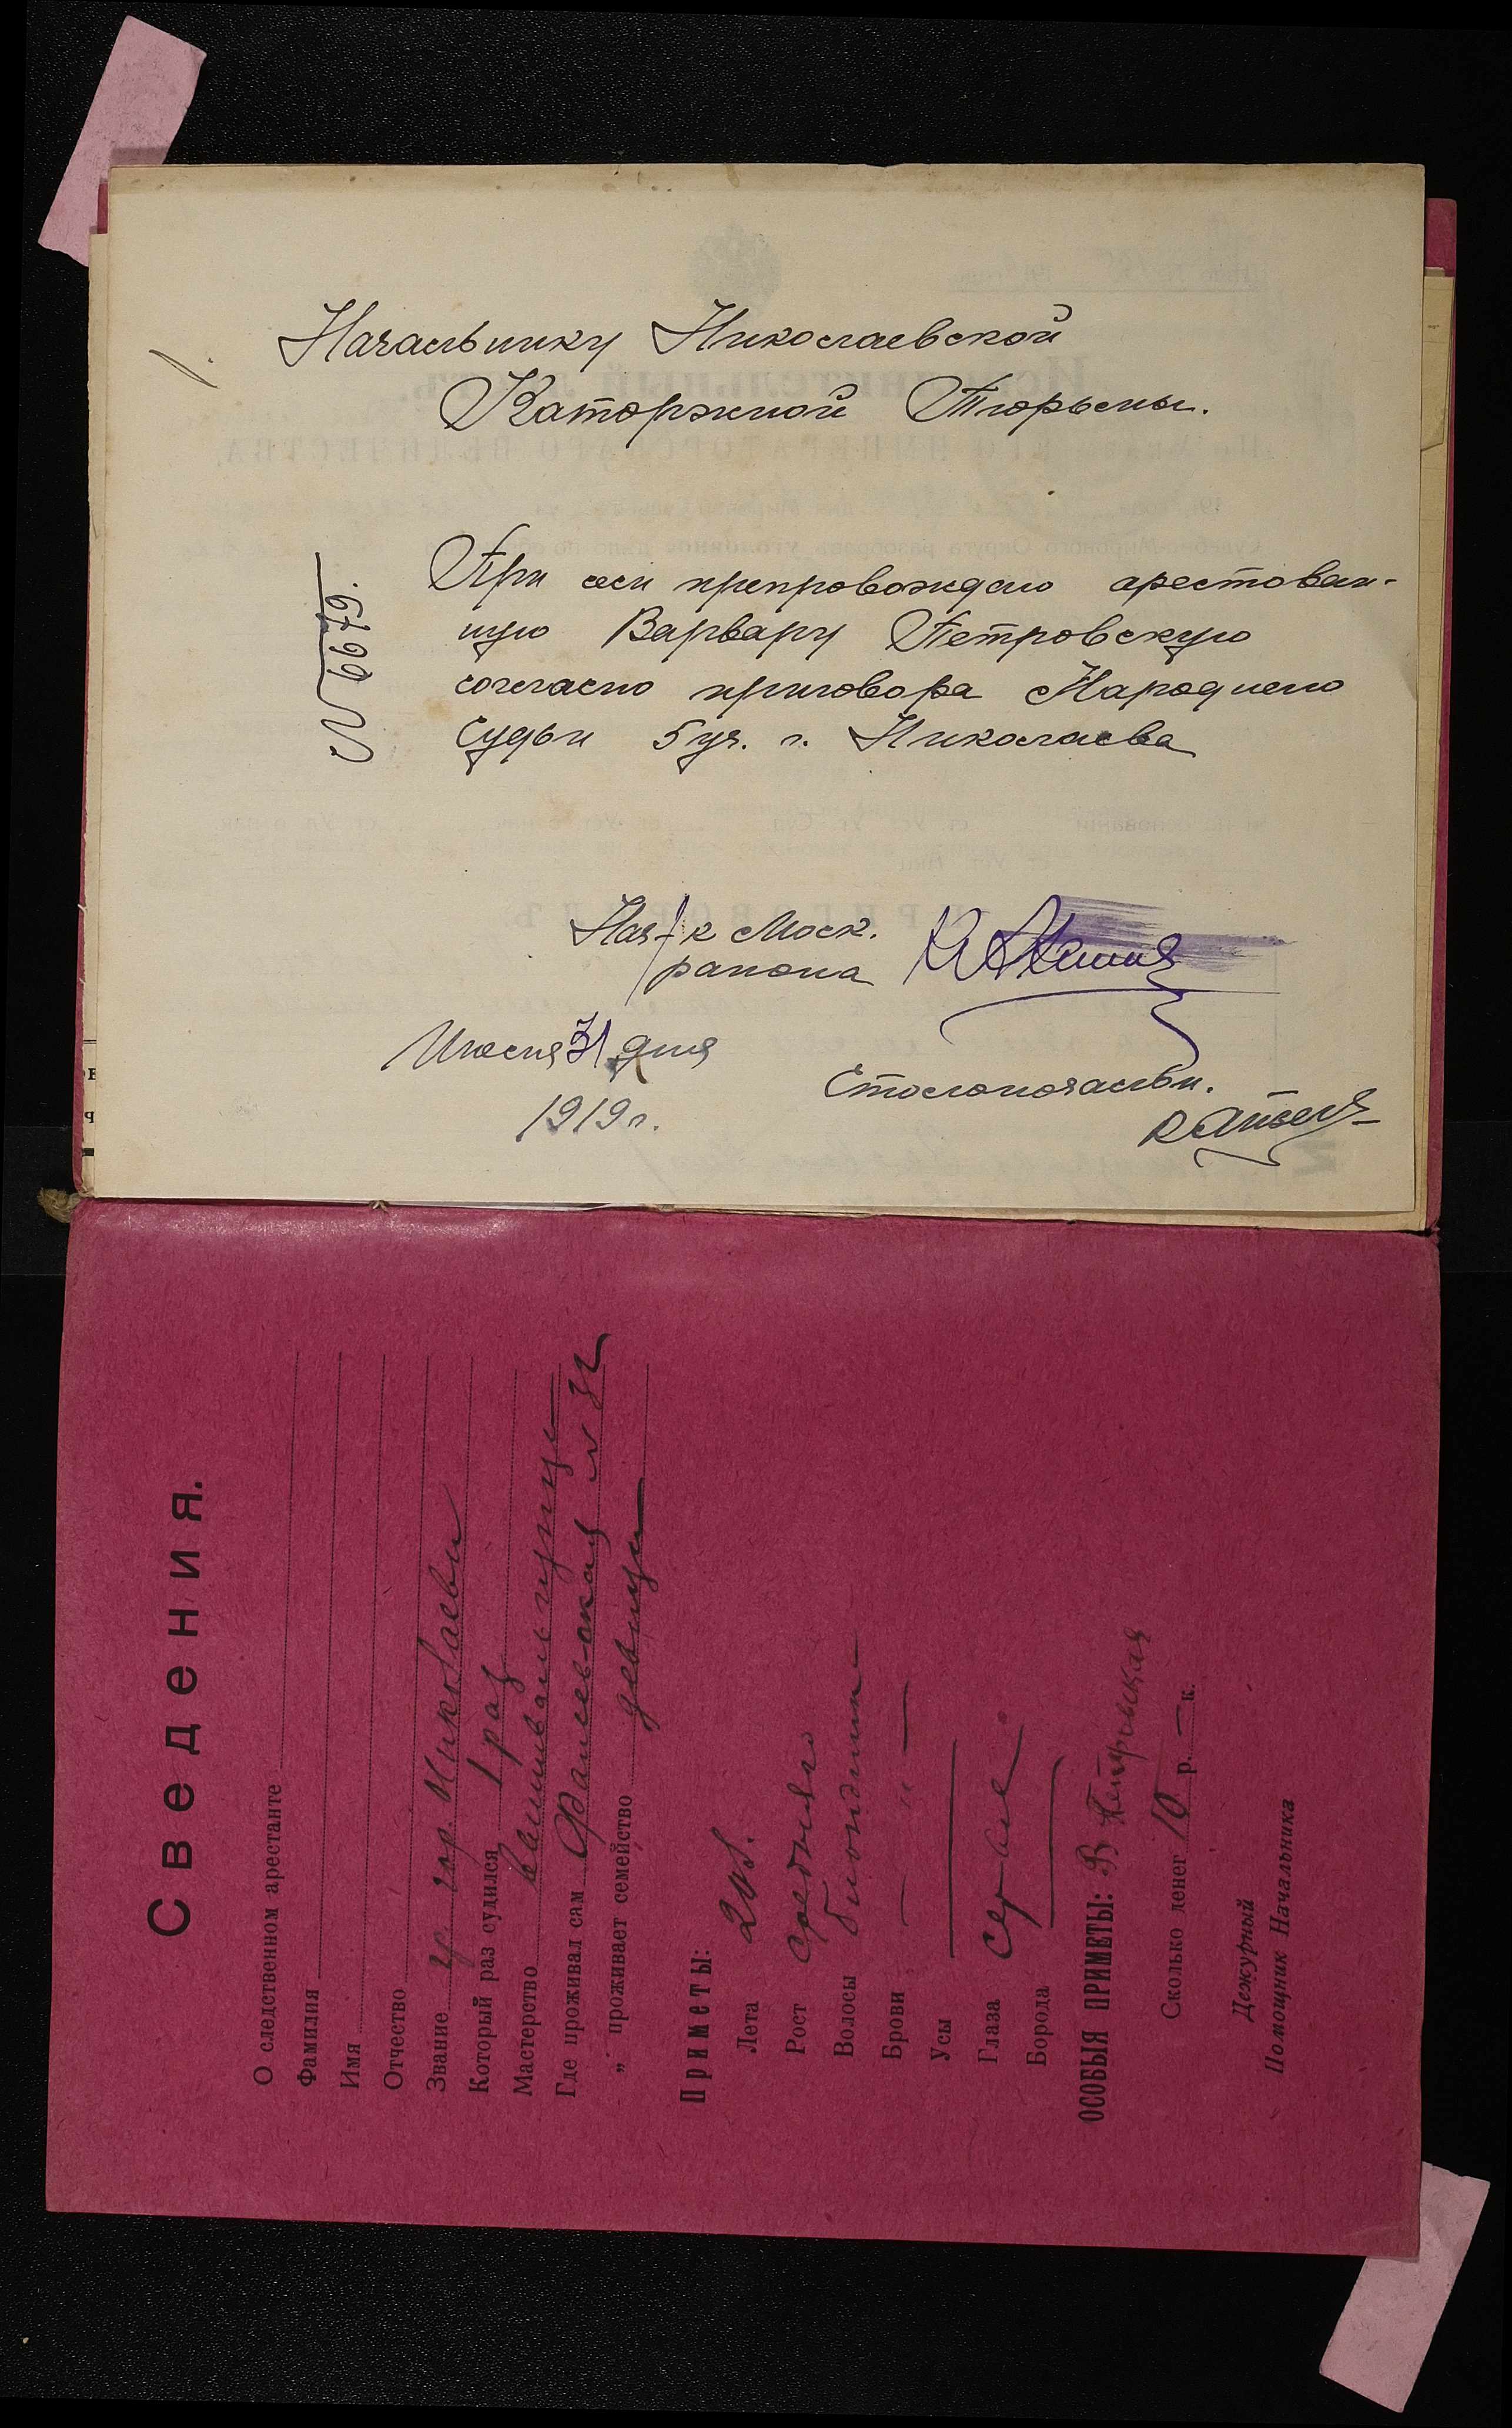 1.
Начальнику Николаевской
Каторжной Тюрьмы.
N 6679.
При сем препровождаю арестован-
ную Варвару Петровскую
согласно приговора Народного
Судьи 5 уч. г. Николаева
Нач-к Моск.
района
Июля 31 дня
1919 г.
Столоначальн.
Сведения.
О следственном арестанте
Фамилия
Имя
Отчество
Звание гр. гор. Николаева
Который раз судился 1 раз
Мастерство
Где проживал сам Фалеевская N 32
„ проживает семейство девица
Приметы:
Лета 20 л.
Рост среднего
Волосы блондинка
Брови — „ —
Усы
Глаза серые
Борода
ОСОБЫЯ ПРИМЕТЫ: В Петровская
Сколько денег 10 р. — к.
Дежурный
Помощник Начальника